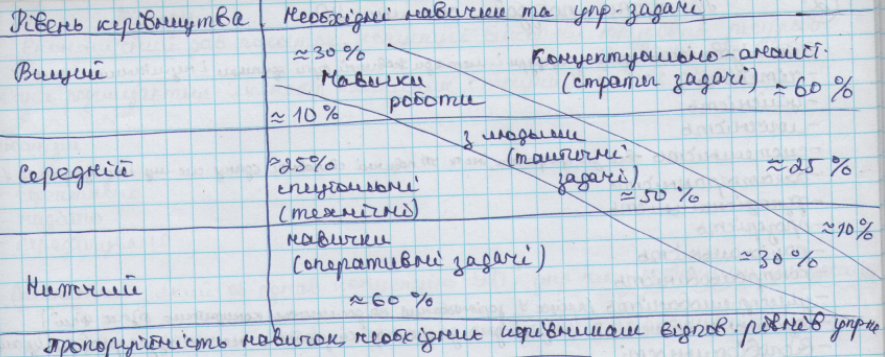 Рівень керівництва Необхідні навички та упр. задачі
Вищий ≈30% Концептуально-аналіт.
Навички (страт. задачі) ≈60%
роботи
≈10%
з людьми
Середній ≈25% (тактичні ≈25%
спеціальні задачі)
(технічні) ≈50%
навички ≈10%
(оперативні задачі) ≈30%
Нижчий
≈60%
Пропорційність навичок, необхідних керівникам відпов. рівнів упр-ня